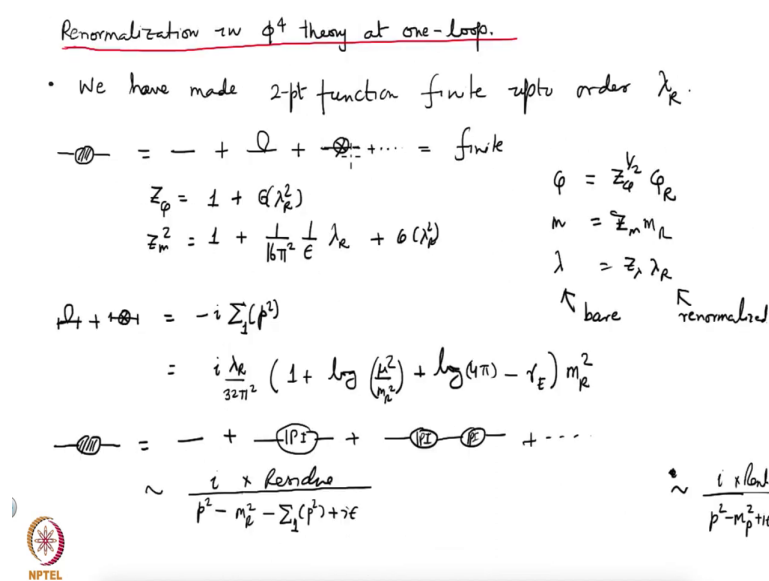 Renormalization in φ⁴ theory at one-loop.
• We have made 2-pt function finite upto order λ_R.
= — + + + ···· = finite
Z_φ = 1 + O(λ_R²)
Z_m² = 1 + 1/16π² 1/ε λ_R + O(λ_R²)
φ = Z_φ^{1/2} φ_R
m = Z_m m_R
λ = Z_λ λ_R
bare renormalized
+ = -i Σ₁(p²)
= i λ_R/32π² (1 + log (μ²/m_R²) + log(4π) - γ_E) m_R²
= — + 1PI + 1PI PI + ····
~ i × Residue / p² - m_R² - Σ₁(p²) + iε
~ i × / p² - m_p² + iε
NPTEL